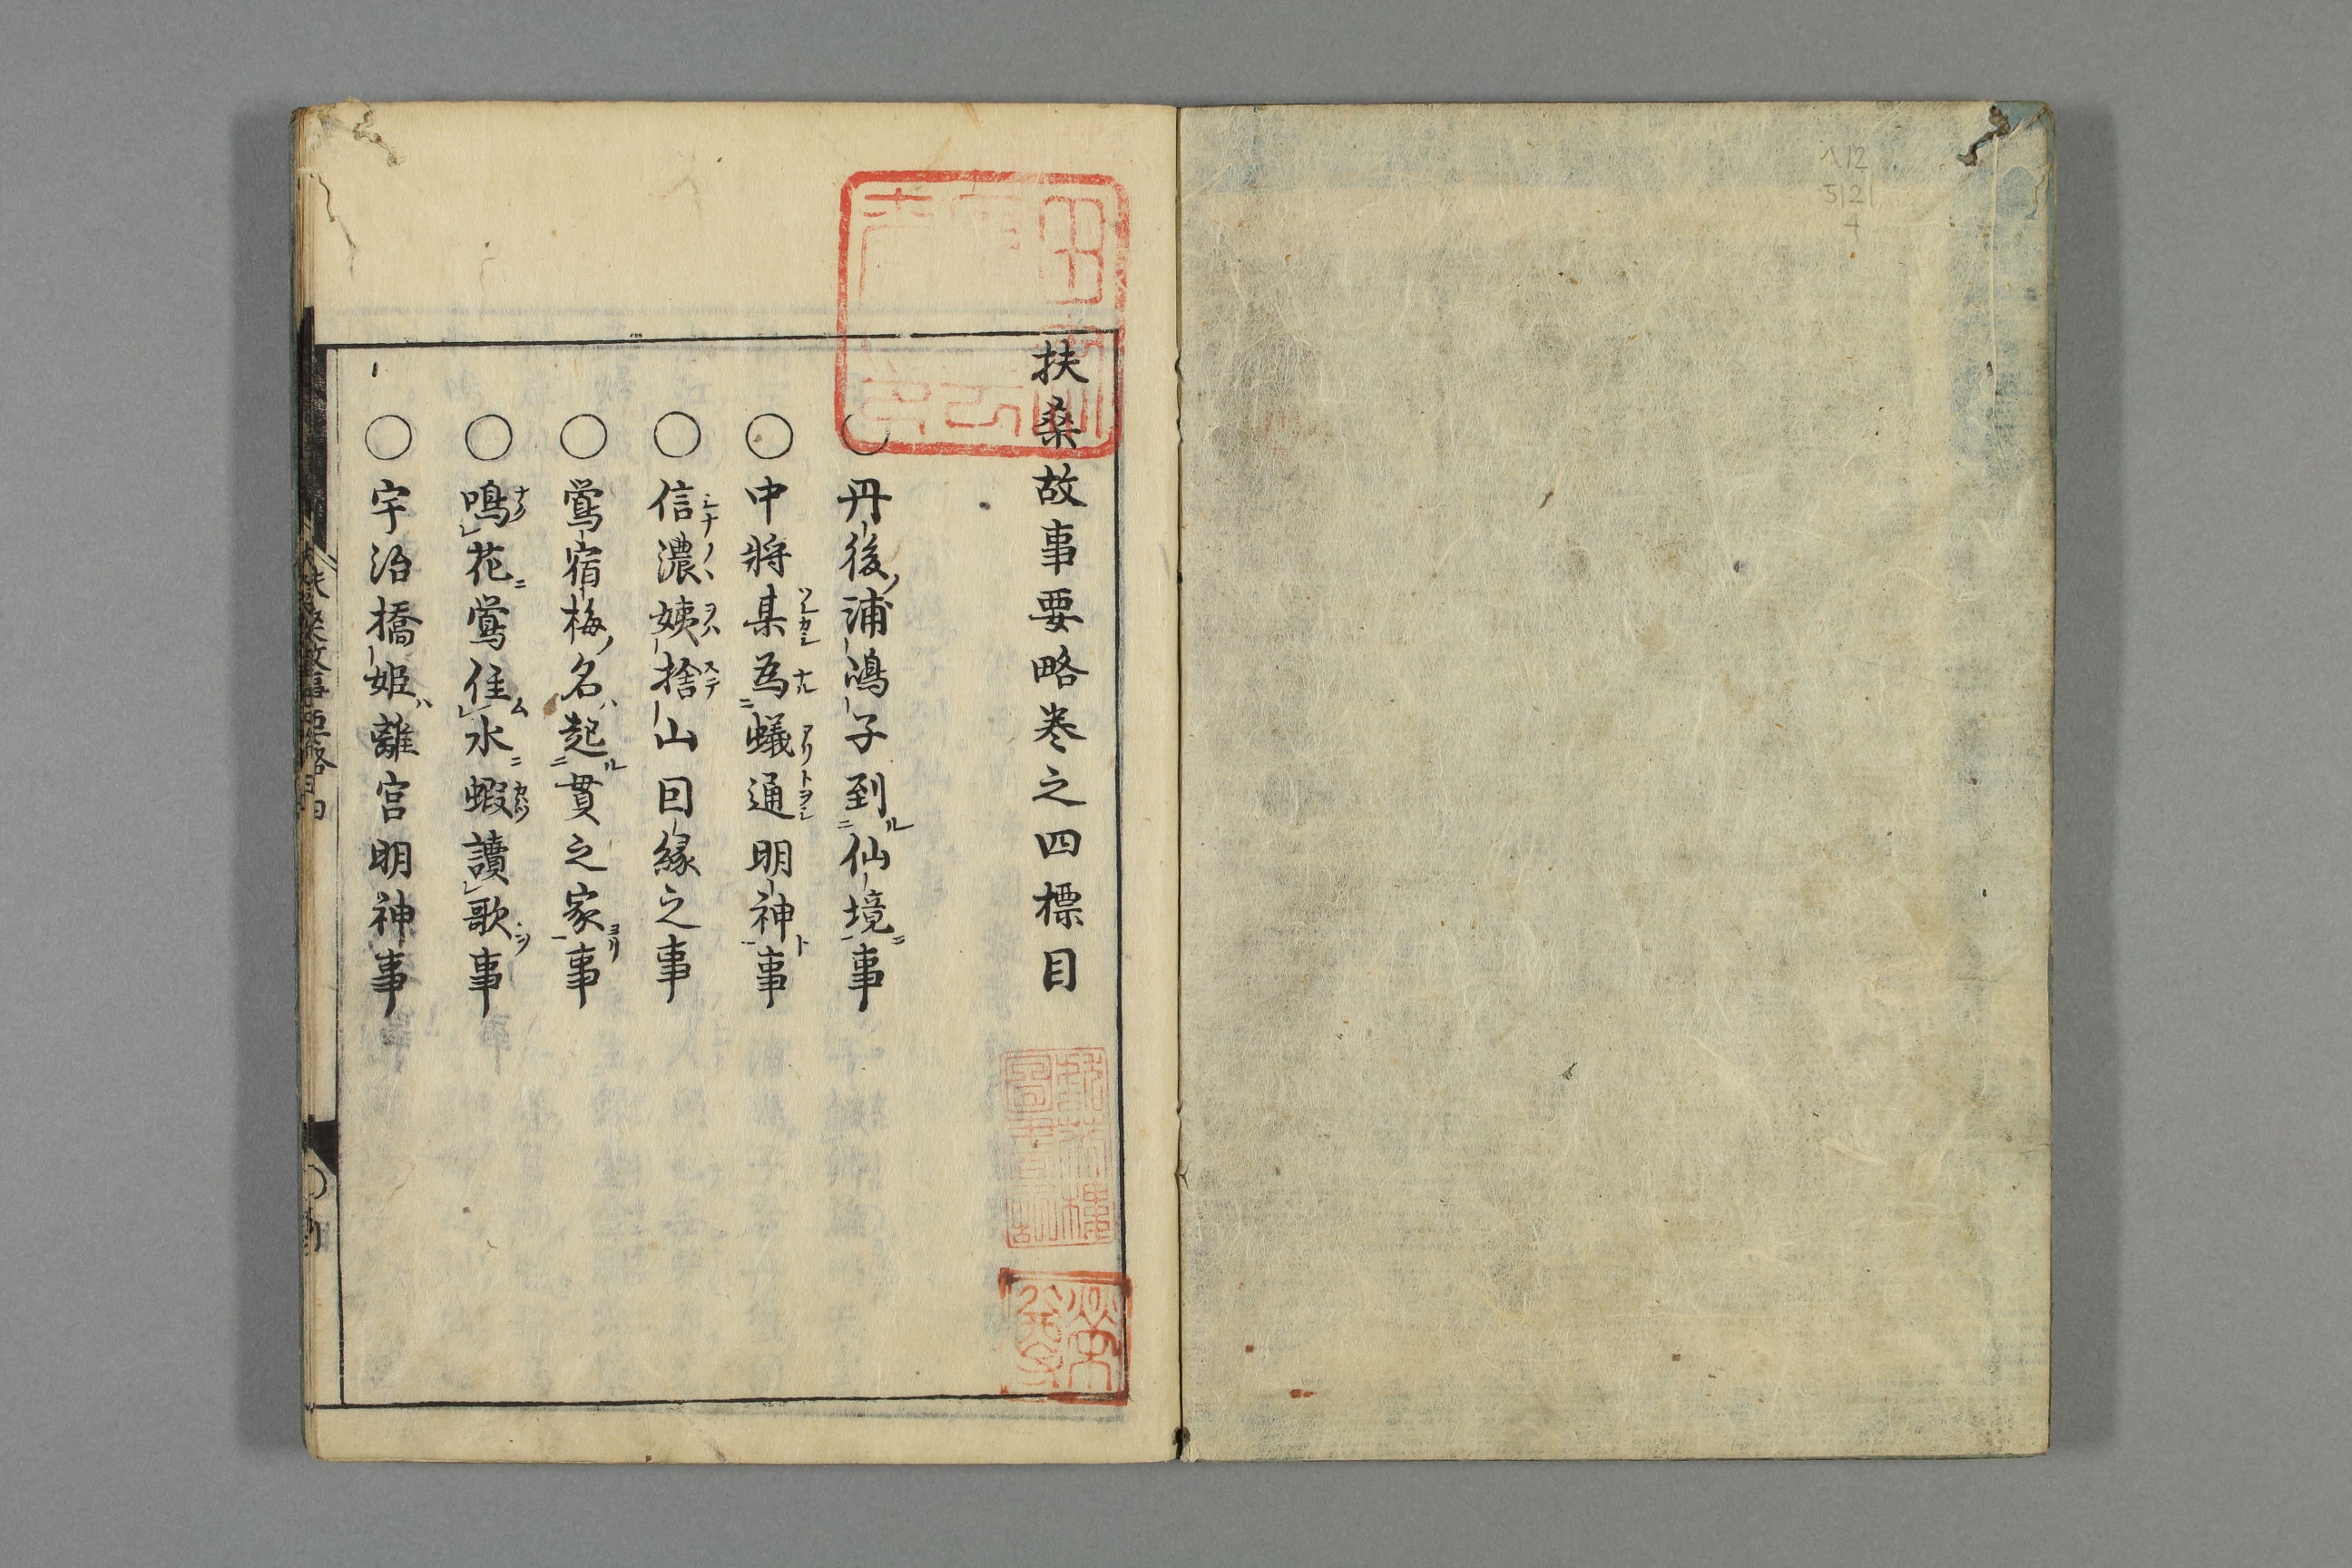 ヘ12
5121
4
扶桑故事要略巻之四標目
○丹後浦嶋子到仙境事
○中將某為蟻通明神事
○信濃姨捨山回縁之事
○鶯宿梅名起貫之家事
○鳴花鶯住水蝦讀歌事
○宇治橋姫離宮明神事
扶桑故事要略 四